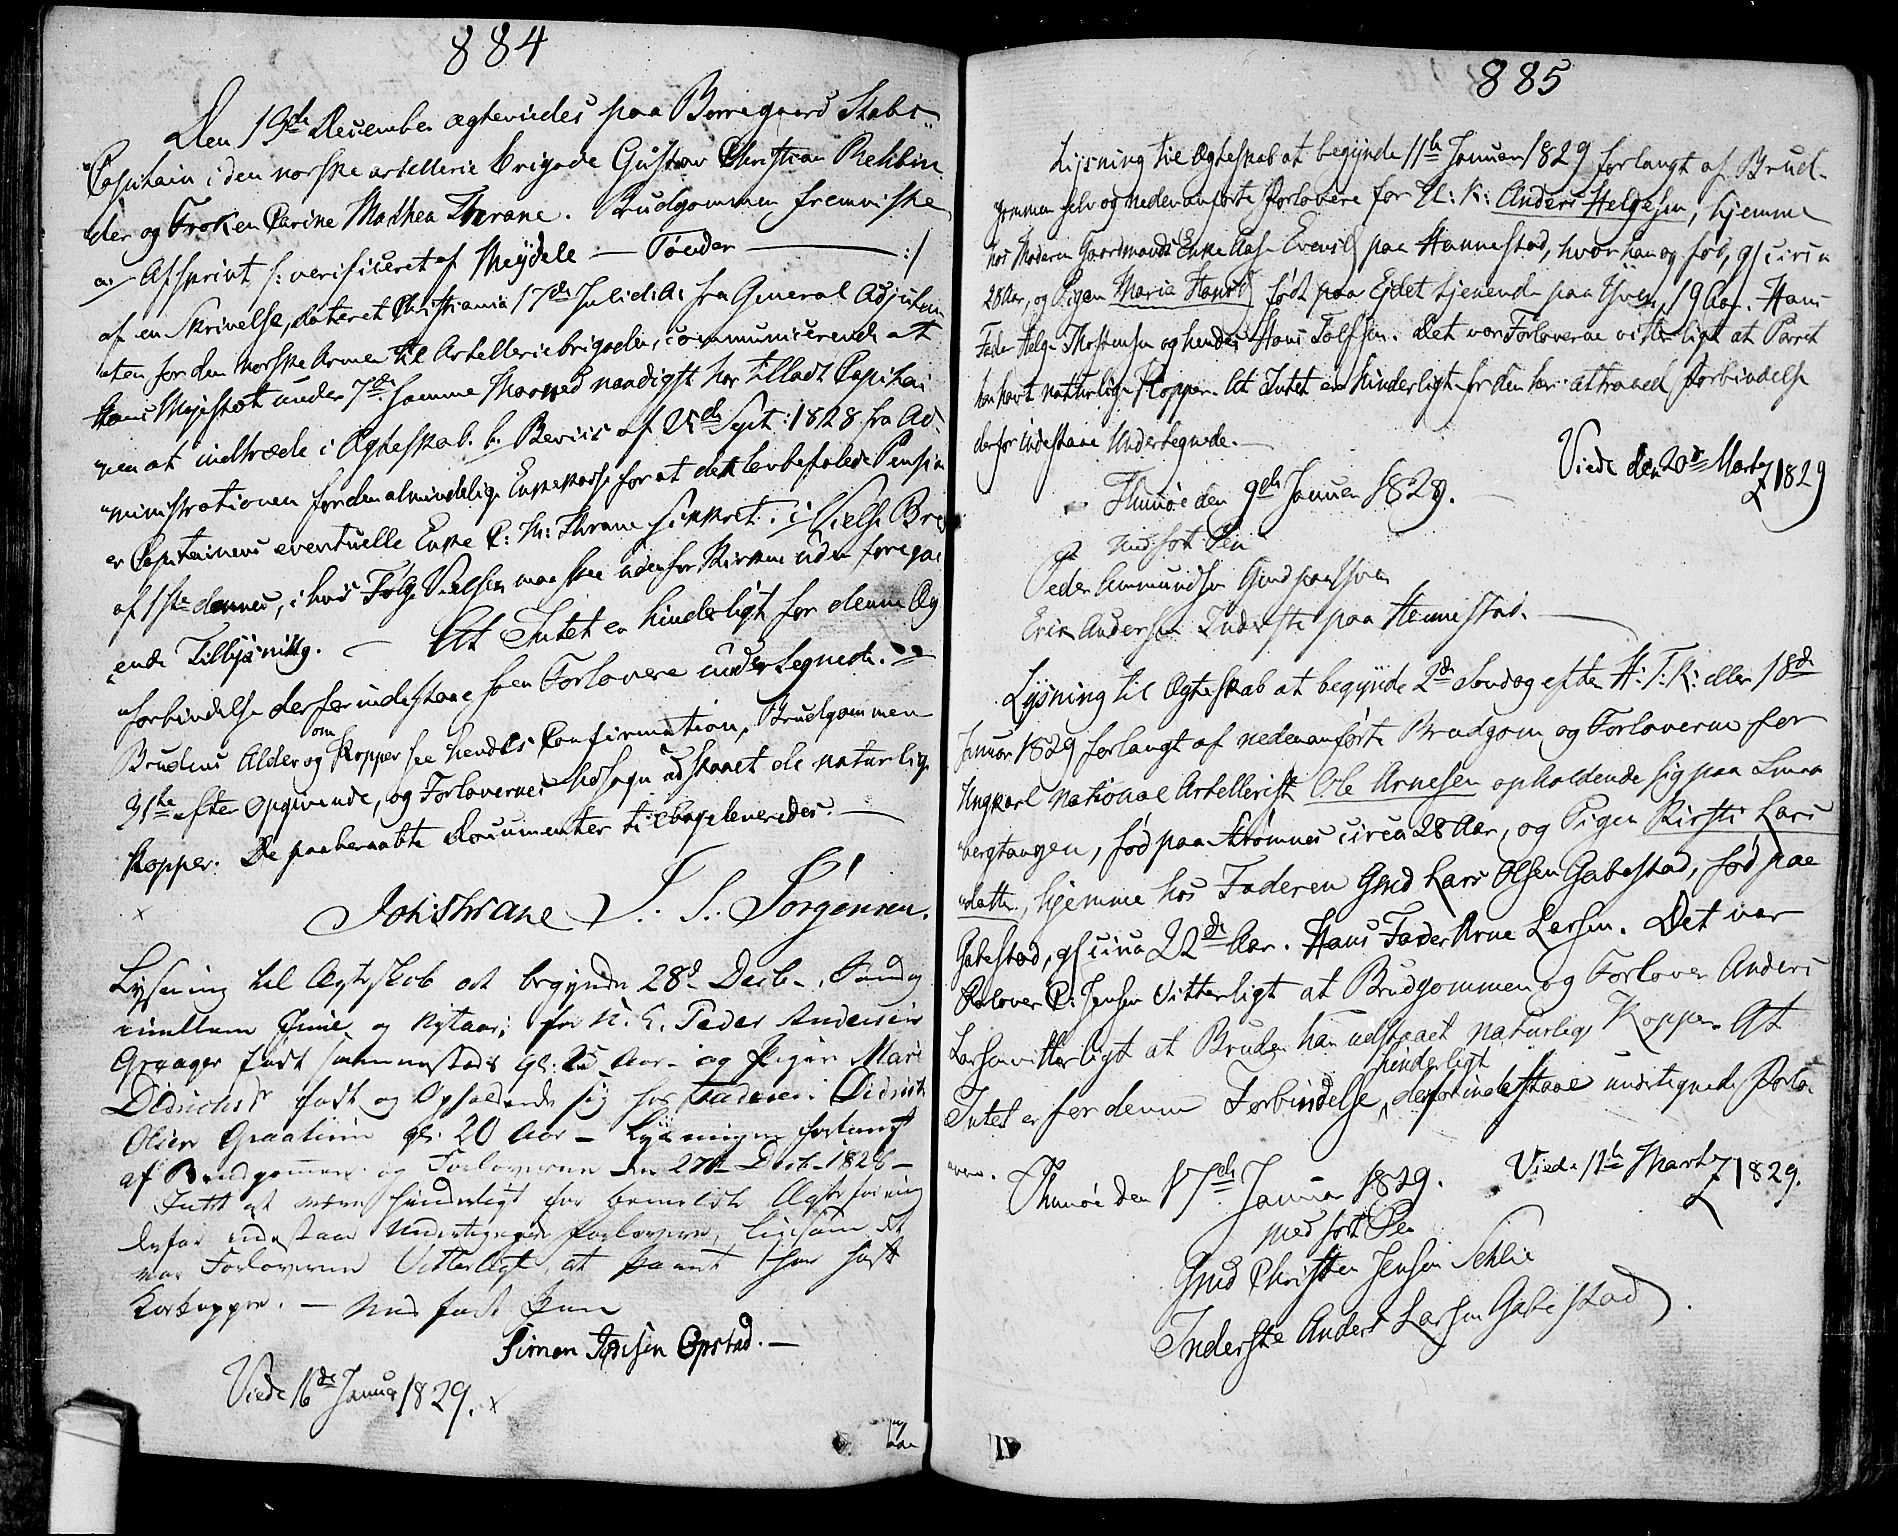 884
Den 19de December ægteviedes paa Borregaard Stabs-
Capitain i den norske artellerie brigade Gustav Christian Rehbin
der og Froken Carine Mathea Thrane. Brudgommen fremviste
a., Afskrivt /: verificeret af Meydele — Tønder — :/
af en Skrivelse, dateret Christiania 17de Juli d: A: fra General Adjutan
ten for den norske Arme til Artelleriebrigaden, communicerende at
Hans Majestæt under 7de samme Maaned naadigst har tilladt Capitai
nen at indtræde i Ægteskab. b. Beviis af 25de Sept: 1828 fra Ad-
ministrationen for den almindelige Enkekasse for at den lovbefalede Pension
er Capitainens eventuelle Enke C: M: Thrane sikkret. c, Vielse Brev
af 1ste dennes, i hvis Følge Vielsen maa skee udenfor Kirken uden foregaa
ende Tillysning. — At Intet er hinderligt for denne Æg
teforbindelse derfor indestaae som Forlovere undertegnede.
Brudens Alder og som Kopper see hendes Confirmation, Brudgommen
31te efter Opgivende, og Forlovernes Udsagn udstaaet de naturlige
Kopper. De paaberaabte Documenter tilbageleveredes. —
Joh: Thrane J. S. Sørgensen.
Lysning til Ægteskab at begynde 28de Decb., Søndag
imellem Juul og Nytaar; for U. K. Peder Andersen
Graager født sammesteds gl: 25 Aar - og Pigen Mari
Didrichsdr født og Opholdende sig hos Faderen Didrich
Olsen Graatiin gl: 20 Aar - Lysningen forlangt
af Brudgommen og Forloverne den 27de Decb. 1828 -
Intet at være hinderligt for bemeldte Ægteforening
derfor indestaae Undertegnede Forlovere, ligesom det
var Forloverne Vitterligt, at Parret har havt
Kokopper. — Med ført Pen
Simon Jonsen Opstad. —
Viede 16de Januar 1829.
885
Lysning til Ægteskab at begynde 11te Januar 1829 forlangt af Brud-
gommen selv og nedenanførte Forlovere for U: K: Anders Helgesen, hjemme
hos Moderen Gaardmands Enke Aase Evensd paa Hannestad, hvor han og fød, gl circa
28 Aar, og Pigen Maria Hansd født paa Ejdet tjenende paa Yven, 19 Aar. Hans
Fader Helge Thostensen og hendes Hans Tolfsen. Det var Forloverne vitterligt at Parret
har havt naturlige Kopper. At Intet er hinderligt for den her attraaede Forbindelse
derfor indestaae Undertegnede. —
Thunøe den 9de Januar 1829. — Viede den 20de Marty 1829
Med ført Pen
Peder Ammundsen
Erik Andersen Inderste paa Hannestad. —
Lysning til Ægteskab at begynde 2de Søndag efter H: T: K: eller 18de
Januar 1829 forlangt af nedenanførte Brudgom og Forloverne for
Ungkarl National Artellerist Ole Arnesen opholdende sig paa
bergtangen, fød paa Strømnes circa 28 Aar, og Pigen Kirsti Lars
datter, hjemme hos Faderen Grd Lars Olsen Gabestad, fød paa
Gabestad, gl circa 22de Aar. Hans Fader Arne Larsen. Det var
Forlover C: Jensen Vitterligt at Brudgommen og Forlover Anders
Larsen vitterligt at Bruden har udstaaet naturlige Kopper. At
Intet er for denne Forbindelse hinderligt, derfor indestaae undertegnede Forlo
vere. Thunøe den 17de Januar 1829. Viede 11te Marty 1829.
med ført Pen
Grd Christen Jensen Schlie
Inderste Anders Larsen Gabestad